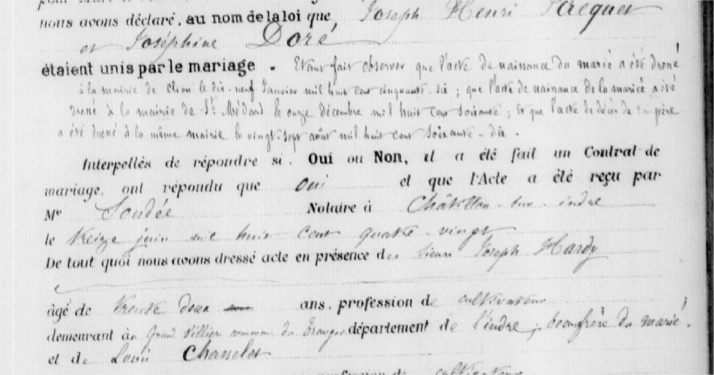 nous avons déclaré, au nom de la loi que Joseph Henri
et Joséphine Doré
étaient unis par le mariage. Etant fait observer que l'acte de naissance du marié a été dressé
à la mairie de Clion le dix-neuf Janvier mil huit cent cinquante-six ; que l'acte de naissance de la mariée a été
dressé à la mairie de St. Médard le onze décembre mil huit cent soixante ; et que l'acte de décès de père
a été dressé à la même mairie le vingt-sept août mil huit cent soixante-dix.
Interpellés de répondre si, Oui ou Non, il a été fait un Contrat de
mariage, ont répondu que oui et que l'Acte a été reçu par
Me Notaire à Châtillon-sur-indre
le treize juin mil huit cent quatre-vingt
De tout quoi nous avons dressé acte en présence des sieurs Joseph Hardy
âgé de trente deux ans, profession de cultivateur
demeurant à Grand commune de département de l'indre, beaufrère du marié,
et de Louis
profession de cultivateur